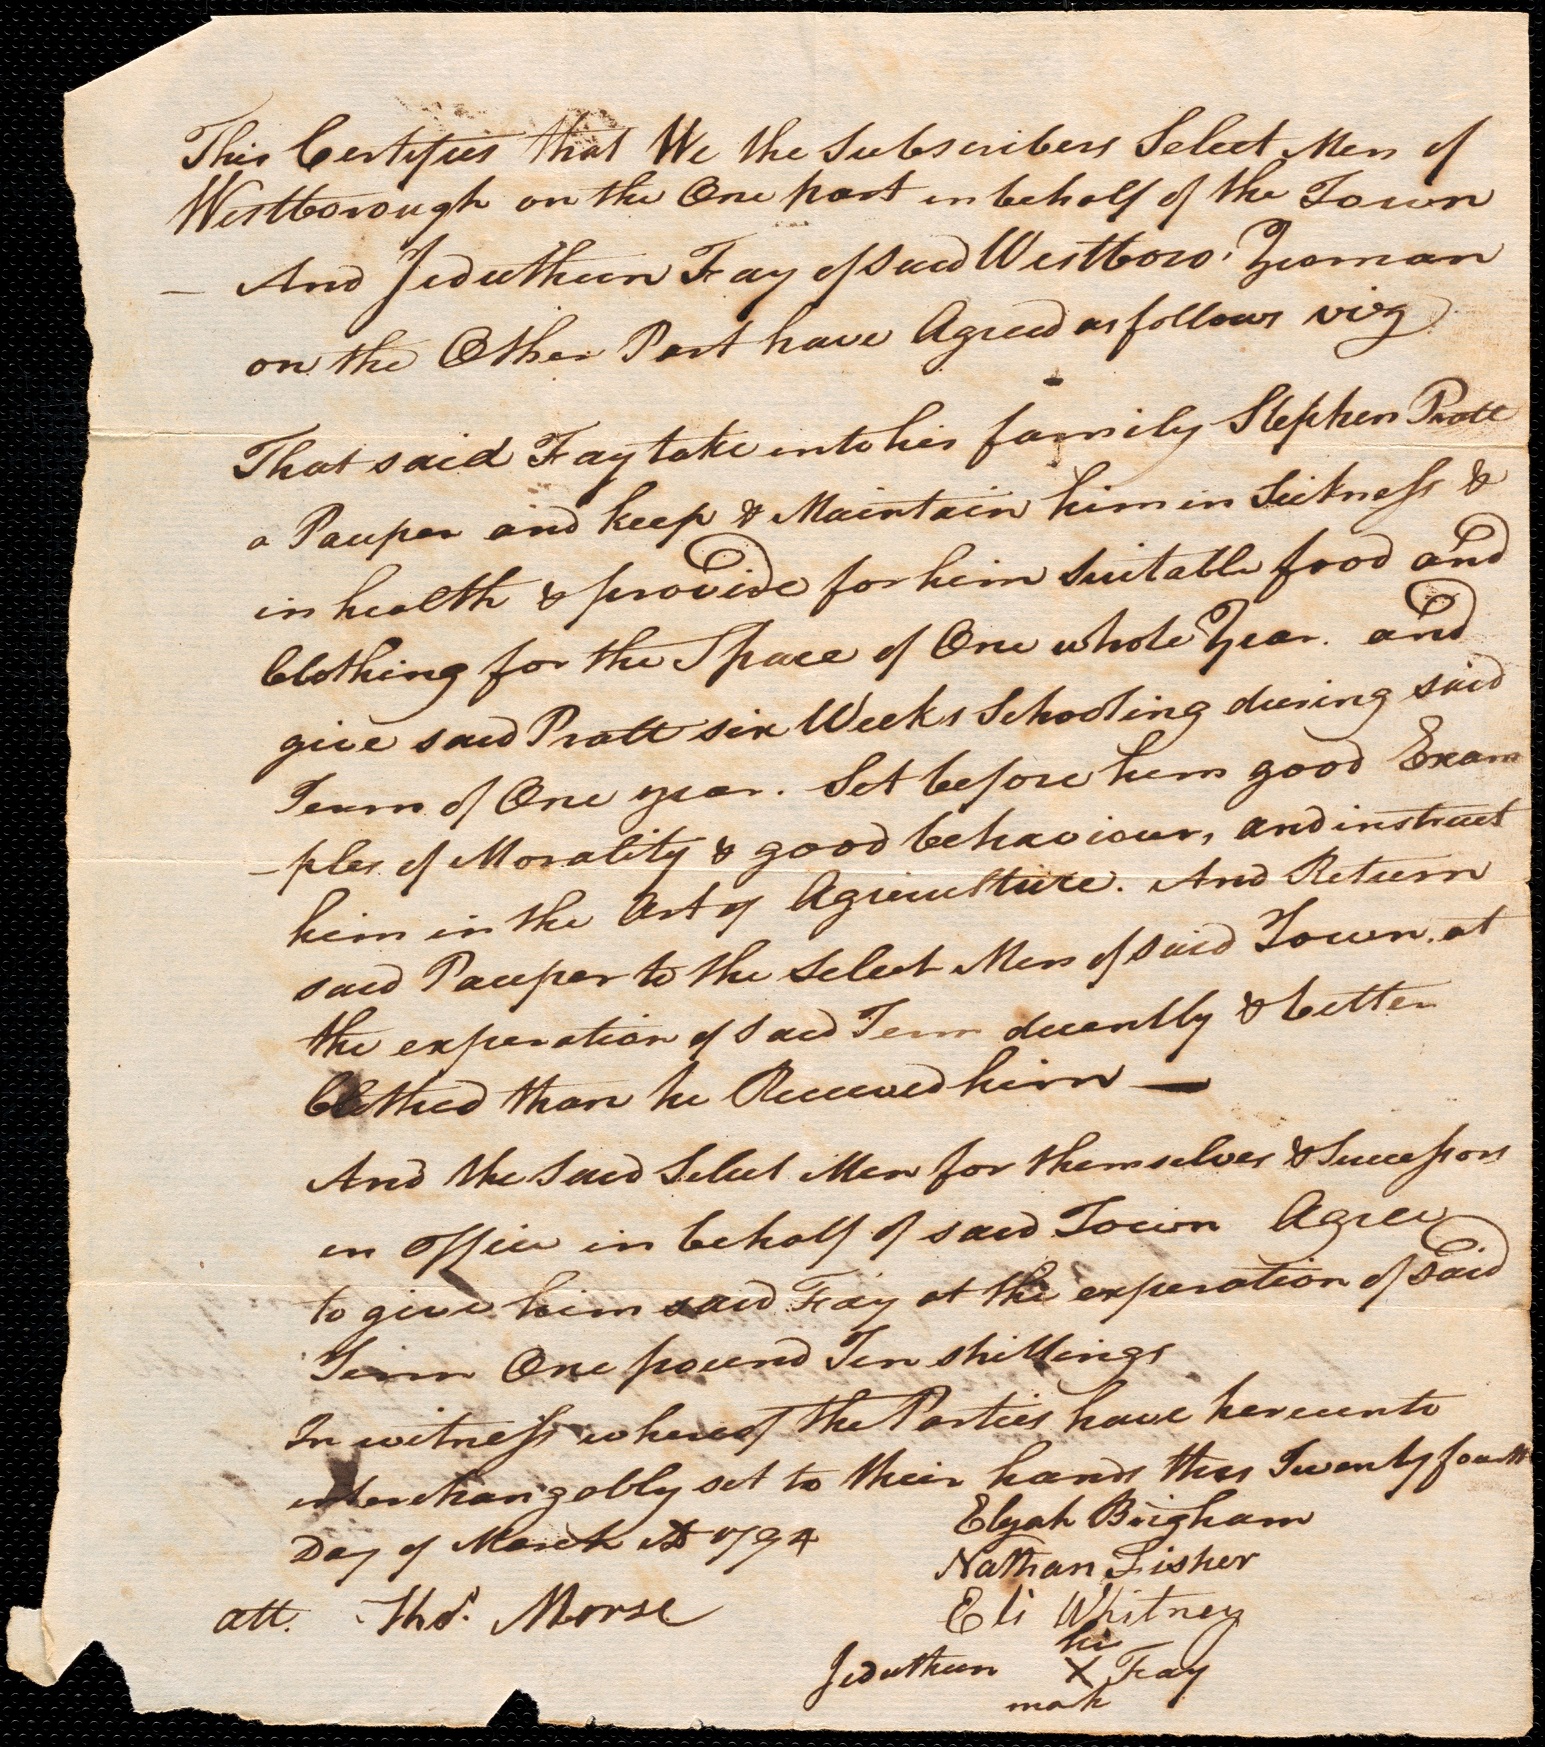 This Certifies that We the Subscribers Select Men of
Westborough on the One part in behalf of the Town
And Jeduthun Fay of said Westboro' Yeoman
on the Other Part have Agreed as follows viz
That said Fay take into his family Stephen Pratt
a Pauper and keep & Maintain him in Sickness &
in health & provide for him Suitable food and
Clothing for the Space of One whole Year. and
give said Pratt six Weeks Schooling during said
Term of One year. Set before him good Exam
-ples of Morality & good behaviour, and instruct
him in the Art of Agriculture. And Return
said Pauper to the Select Men of said Town at
the experation of said Term decently & better
Clothed than he Received him —
And the Said Select Men for themselves & Successors
in office in behalf of said Town Agree
to give him said Fay at the experation of said
Term One pound Ten shillings
In witness whereof the Parties have hereunto
interchangably set to their hands this Twenty fourth
Day of March AD 1794
Elijah Brigham
Nathan Fisher
Eli Whitney
att. Thos. Morse
his
Jeduthun X Fay
mark